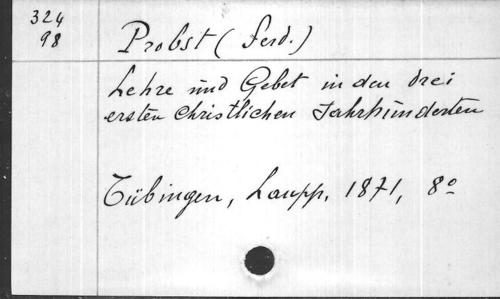 324
98
Probst (Ferd.)
Lehre und Gebet in den drei
ersten Christlichen Jahrhunderten
Tübingen, Laupp, 1871, 8º